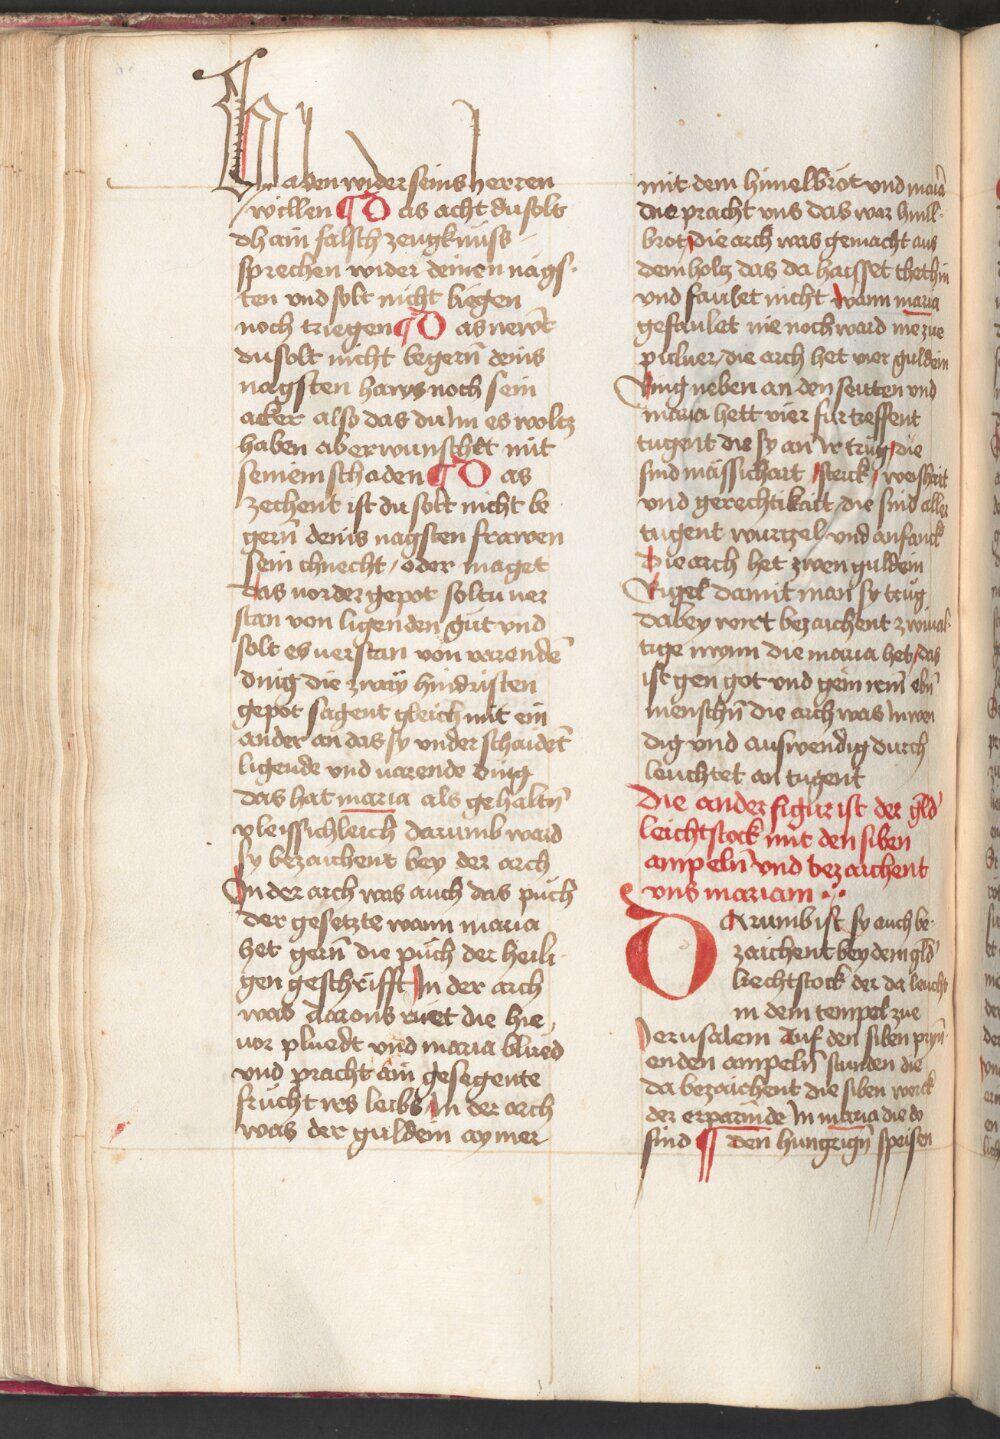 Haben wider seins herren
willen ¶ Das acht du solt
chain falsch zeugknüss
sprechen wider deinen nägs
ten vnd solt nicht liegen
noch triegen ¶ Das newnt
du solt nicht begern̄ deins
nagsten haws noch sein
acker also das du Im es woltz
haben aber wunschest mit
seinem schaden ¶ Das
zechent ist du solt nicht be
gern̄ deins nagsten frawen
sein chnecht / oder maget
Das uorder gepot soltu uer
stan von ligenden gut vnd
solt es uerstan von uarendē
ding die zwaÿ hindristen
gepot sagent gleich mit ein
ander an das sy vnderschaidet
ligende vnd uarende ding
das hat maria als gehaltn̄
vleissichleich darumb ward
sy bezaichent bey der arch
In der arch was auch das puch
der gesetzte wann maria
het gern̄ die puch der heili
gen geschrifft In der arch
was Aarons ruet die hie
uor pluedt vnd maria blued
vnd pracht ain gesegente
frucht irs leibs In der arch
was der guldein aymer
mit dem himelbrot vnd maria
die pracht vns das war himl
brot, die arch was gemacht aus
dem holtz das da haisset thethin
vnd faulet nicht wann maria
gefaulet nie noch ward nie zue
puluer, die arch het vier guldein
Ring neben an den seitten vnd
maria hett vier furtreffent
tugent die sy an ir trug, die
sind mässichait, sterck, weishait
vnd gerechtikait, die sind aller
tugent wurtzel vnd anfanck
Die arch het zwen guldein
Rigel damit man sy trug
dabey wirt bezaichent zwiual
tige mynn die maria het, das
ist gen got vnd gein irem ebn̄
menschn̄ die arch was Inwen
dig vnd auswendig durch
leuchtet an tugent
Die ander figur ist der gld̄
leichtstock mit den siben
ampeln̄ vnd bezaichent
vns mariam
Darumb ist sy auch be
zaichent bey dem gld̄
liechtstock der da leucht
in dem tempel zue
Jerusalem Auf den siben prynn
enden ampeln̄ stunden die
da bezaichent die siben werck
der erparmde In maria die do
sind ¶ den hungrign̄ speisen